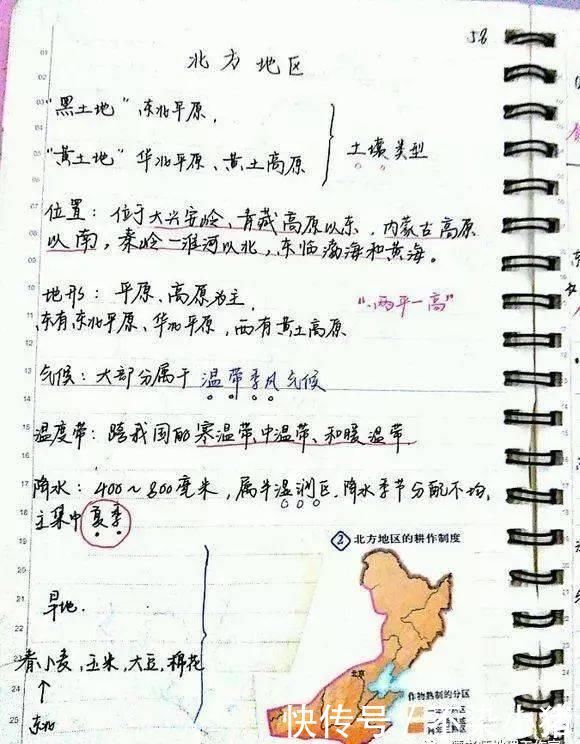 58
北方地区
"黑土地" 东北平原,
"黄土地" 华北平原、黄土高原
土壤类型
位置：位于大兴安岭、青藏高原以东，内蒙古高原
以南，秦岭—淮河以北，东临渤海和黄海。
地形：平原、高原为主.
"两平一高"
东有东北平原、华北平原，西有黄土高原
气候：大部分属于 温带季风气候
温度带：跨我国的寒温带、中温带、和暖温带.
降水：400~800毫米，属半湿润区.降水季节分配不均.
主集中夏季
② 北方地区的耕作制度
旱地.
北京
春小麦,玉米,大豆,棉花
作物熟制的分区
↑
东北
快传号/